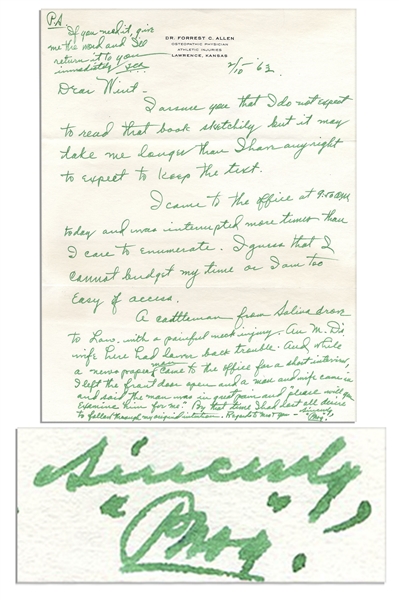 P.A.
If you need it, give
me the word and I'll
return it to you
immediately
DR. FORREST C. ALLEN
OSTEOPATHIC PHYSICIAN
ATHLETIC INJURIES
LAWRENCE, KANSAS
2/10-'63.
Dear Wint-
I assure you that I do not expect
to read that book sketchily but it may
take me longer than I have any right
to expect to keep the text.
I came to the office at 9:50 AM
today and was interrupted more times than
I care to enumerate. I guess that I
cannot budget my time or I am too
easy of access.
A cattleman from Salina drove
to Law. with a painful neck injury. An M.D's
wife here had back trouble. And while
a news came to the office for a short interview,
I left the front door open and a man and wife came in
and said the man was in great pain and "please will you
examine him for me." By that time I had lost all desire
to follow through my original intention. Regards to
Sincerely
"Phog".
Sincerely,
"Phog".